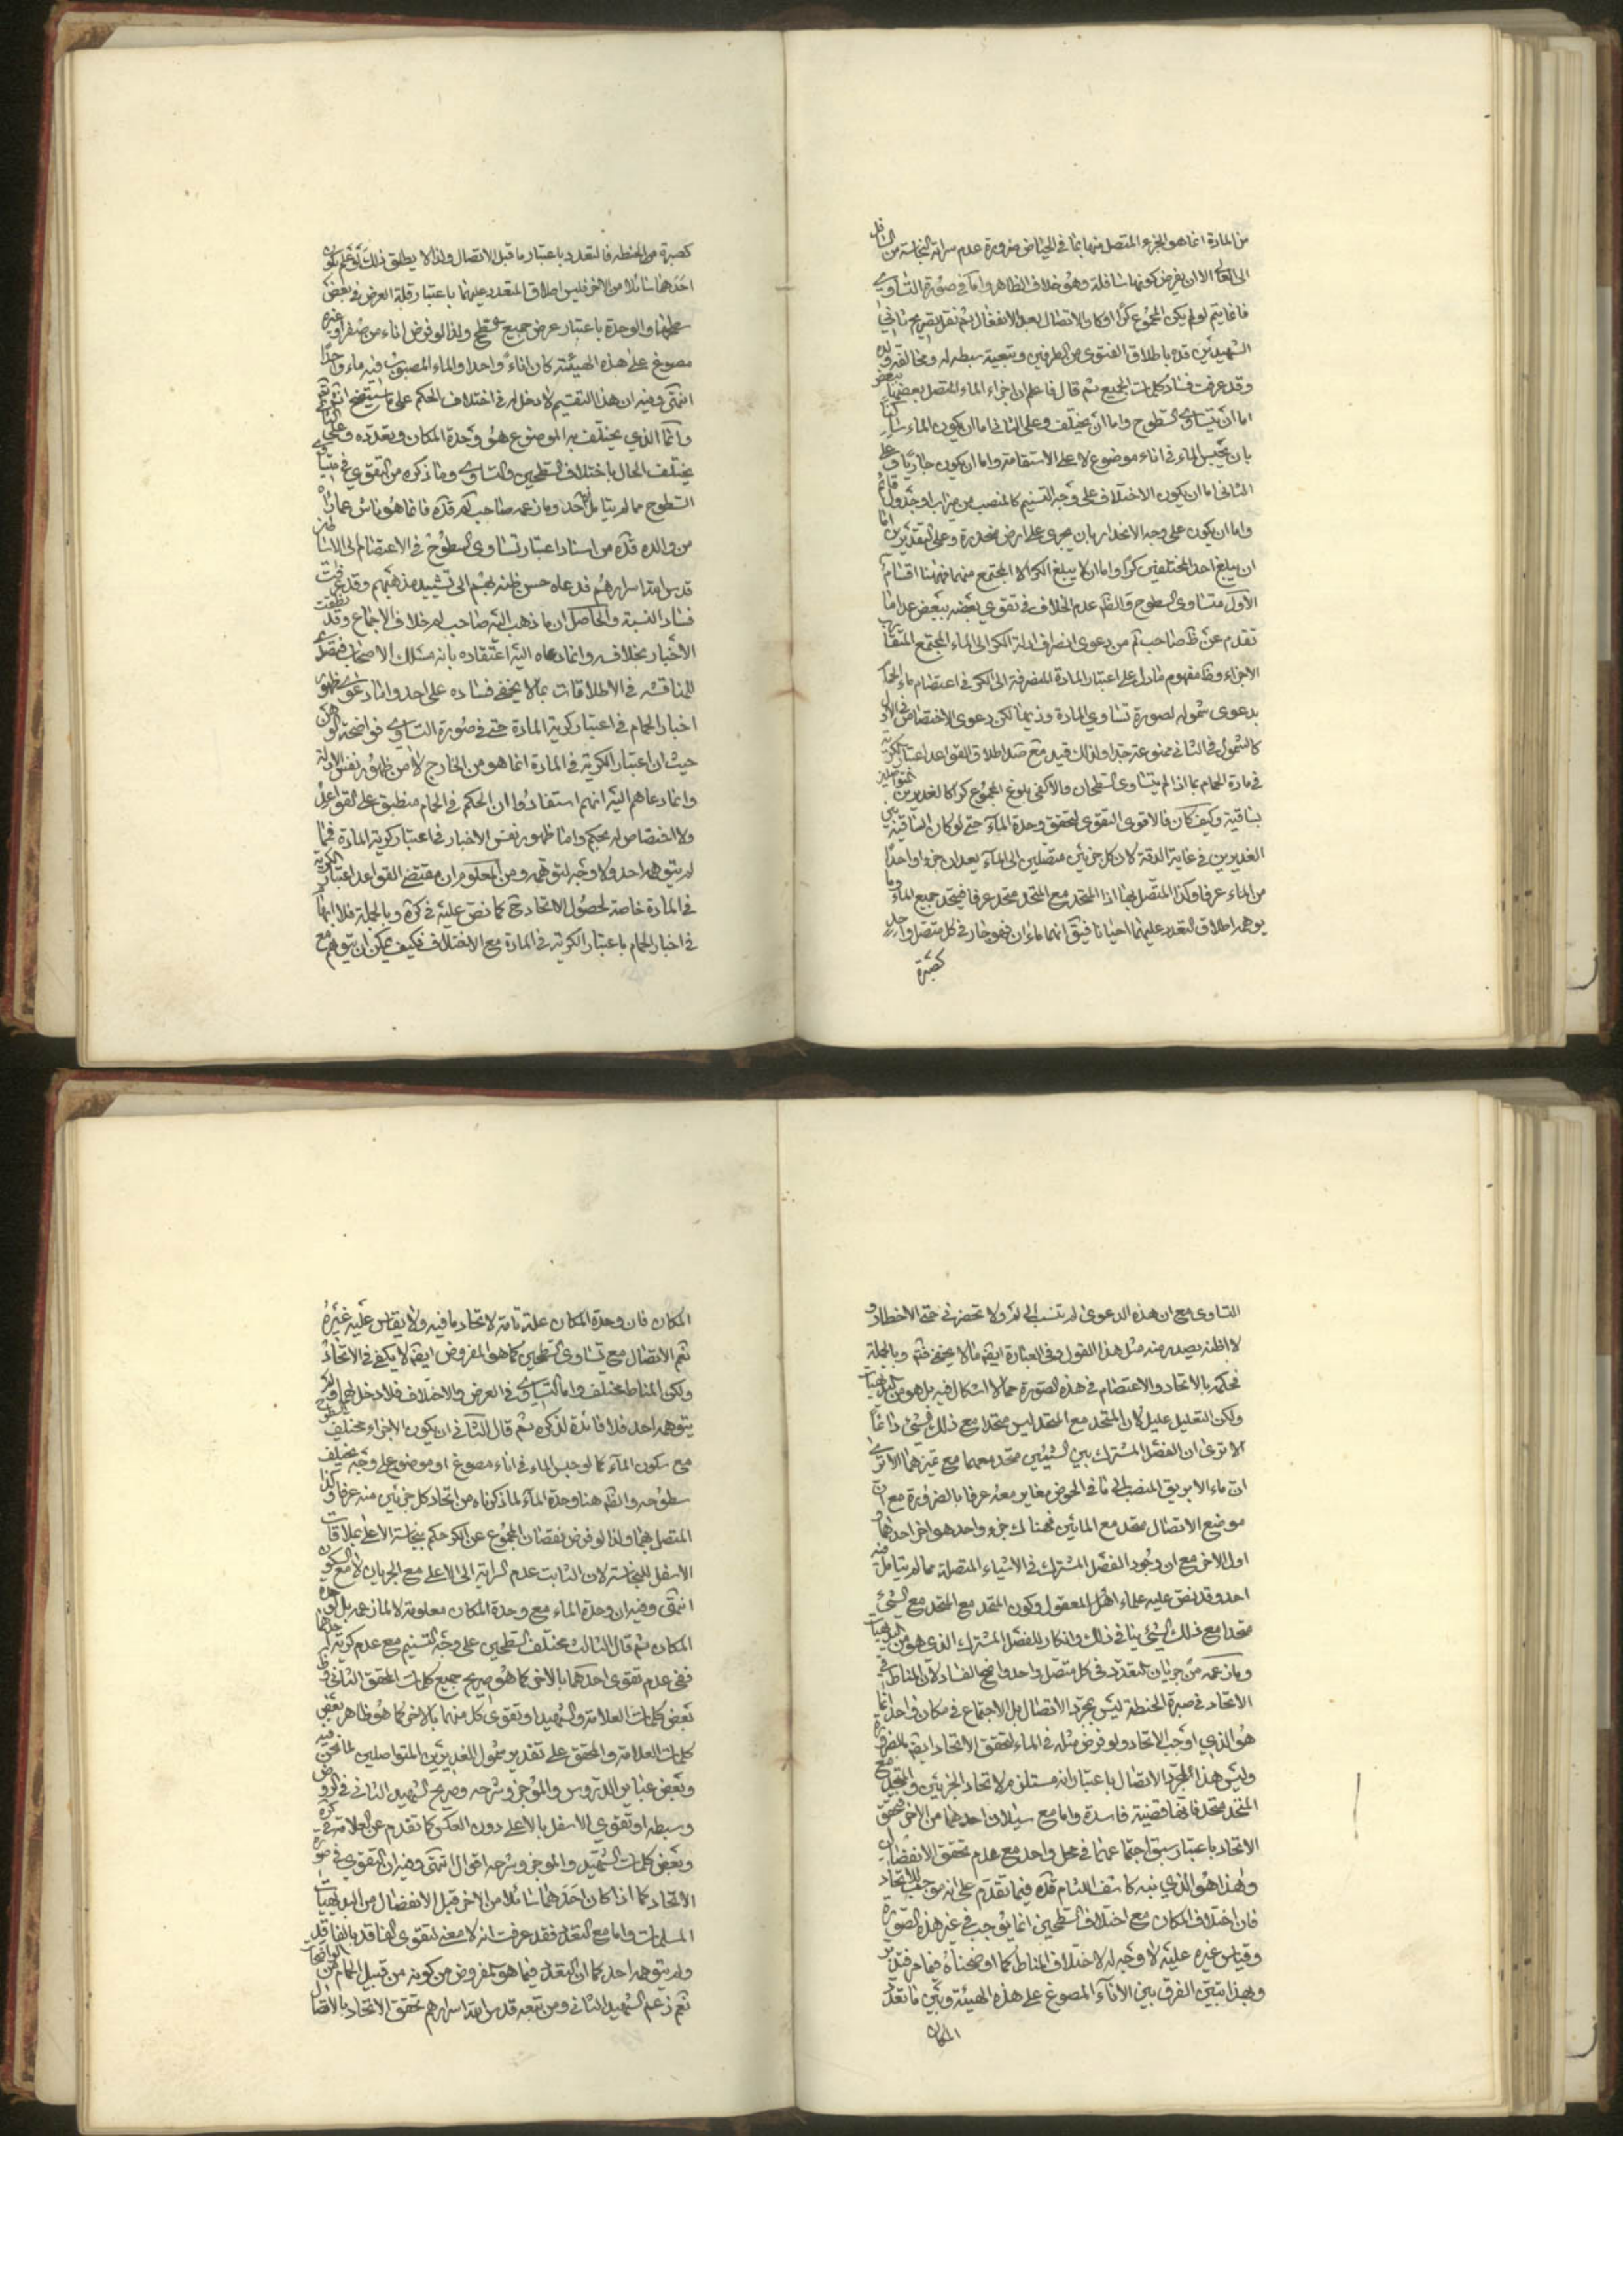 من المادة انما هو الجزء المتصل منها بما في الحياض ضرورة عدم سراية النجاسة من السافل
الى العالى الا ان يفرض كونها سافلة وهو خلاف الظاهر واما في صورة التساوي
فانما يتم لو لم يكن المجموع كرا او كان الاتصال بعد الانفعال ثم نقل تصريح ثاني
الشهيدين قده باطلاق الفتوى من الطرفين وتبعية سبطه له ومخالفة ولده
وقد عرفت فساد كلمات الجميع ثم قال فاعلم ان اجزاء الماء المتصل بعضها ببعض
اما ان يتساوى السطوح واما ان يختلف وعلى الثاني اما ان يكون الماء ساكنا
بان يحبس الماء في اناء موضوع لا على الاستقامة واما ان يكون جاريا وعلى
الثاني اما ان يكون الاختلاف على وجه التسنيم كالمنصب من ميزاب او جدول قائم
واما ان يكون على وجه الانحدار بان يجرى على ارض منحدرة وعلى التقديرين اما
ان يبلغ احد المختلفين كرا واما ان لا يبلغ الكر الا المجتمع منهما فهنا اقسام
الاول متساوى السطوح والظ عدم الخلاف في تقوي بعضه ببعض عدا ما
تقدم عن ظ صاحب لم من دعوى انصراف ادلة الكر الى الماء المجتمع المتقارب
الاجزاء وظ مفهوم مادل على اعتبار المادة المنصرفة الى الكر في اعتصام ماء الحمام
بدعوى شموله لصورة تساوي المادة وذيها لكن دعوى الاختصاص في الاول
كالشمول في الثاني ممنوعة جدا ولذلك قيد مع ضد اطلاق القواعد اعتبار الكرية
في مادة الحمام بما اذا لم يتساوى السطحان والا كفى بلوغ المجموع كرا كالغديرين المتواصلين
بساقية وكيف كان فالاقوى التقوى لتحقق وحدة الماء حتى لو كان الساقية بين
الغديرين في غاية الدقة لان كل جزئين متصلين الى الماء يعدان جزوا واحدا
من الماء عرفا وكذا المتصل بهما اذ المتحد مع المتحد متحد عرفا فيتحد جميع الماء وما
يوهمه اطلاق التعدد عليهما احيانا فيق انهما ماءان فهو جار في كل متصل واحد
كصبرة
كصبرة من الحنطة فالتعدد باعتبار ما قبل الاتصال ولذا لا يطلق ذلك نعم لو كان
احدهما سائلا من الاخر فليس اطلاق المتعدد عليهما باعتبار قلة العرض في بعض
سطحها والوحدة باعتبار عرض جميع السطح ولذا لو فرض اناء من صفر او غيره
مصوغ على هذه الهيئة كان اناءً واحدا والماء المصبوب فيه ماء واحدا
انتهى وفيه ان هذا التقسيم لا دخل له في اختلاف الحكم على ما ستيضح انش
وانما الذي يختلف به الموضوع هو وحدة المكان وتعدده وعلى الثاني
يختلف الحال باختلاف السطحين والتساوي وما ذكره من التقوي في متساوي
السطوح مما لم يتامل احد وما زعمه صاحب لم قده فانما هو ناش عما راه
من والده قده من اسناد اعتبار تساوي السطوح في الاعتصام الى الاساطين
قدس الله اسرارهم فدعاه حسن ظنه بهم الى تشييد مذهبهم وقد عرفت
فساد النسبة والحاصل ان ما ذهب اليه صاحب لم خلاف الاجماع وقد نطقت
الاخبار بخلافه وانما دعاه اليه اعتقاده بانه مسلك الاصحاب فتصدى
للمناقشه في الاطلاقات بما لا يخفى فساده على احد واما دعوى ظهور
اخبار الحمام في اعتبار كرية المادة حتى في صورة التساوي فواضحة الوهن
حيث ان اعتبار الكرية في المادة انما هو من الخارج لا من ظهور نفس الادلة
وانما دعاهم اليه انهم استفادوا ان الحكم في الحمام منطبق على القواعد
ولا اختصاص له بحكم واما ظهور نفس الاخبار في اعتبار كرية المادة فمما
لم يتوهمه احد ولا وجه لتوهمه ومن المعلوم ان مقتضى القواعد اعتبار الكرية
في المادة خاصة لحصول الاتحاد ح كما نص عليه في كرة وبالجملة فلا ايهام
في اخبار الحمام باعتبار الكرية في المادة مع الاختلاف فكيف يمكن ان يتوهم مع
التساوى مع ان هذه الدعوى لم تنسب الى لم ولا تحضرني ح الاخطار و
لا اظنه يصدر منه مثل هذا القول وفي العبارة ايض ما لا يخفى فتم وبالجملة
فحكمه بالاتحاد والاعتصام في هذه الصورة مما لا اشكال فيه بل هو من البديهيات
ولكن التعليل عليل لان المتحد مع المتحد ليس متحدا مع ذلك الشئ دائما
الا ترى ان الفصل المشترك بين الشيئين متحد معهما مع تميزهما الا ترى
ان ماء الابريق المنصب الى ما في الحوض مغاير معه عرفا بالضرورة مع ان
موضع الاتصال متحد مع المائين فهناك جزء واحد هو اخر احدهما و
اول الاخر مع ان وجود الفصل المشترك في الاشياء المتصلة مما لم يتامل فيه
احد وقد نص عليه علماء اهل المعقول وكون المتحد مع المتحد مع الشئ
متحدا مع ذلك الشئ ينافي ذلك وانكار للفصل المشترك الذي هو من البديهيات
وما زعمه من جريان التعدد في كل متصل واحد واضح الفساد لان المناط في
الاتحاد في صبرة الحنطة ليس مجرد الاتصال بل الاجتماع في مكان واحد انما
هو الذي اوجب الاتحاد ولو فرض مثله في الماء لتحقق الاتحاد ايض بالضرورة
وليس هذا المجرد الاتصال باعتبار انه مستلزم لاتحاد الجزئين والمتحد مع
المتحد متحد فانها قضية فاسدة واما مع سيلان احدهما من الاخر فتحقق
الاتحاد باعتبار سبق اجتماعهما في محل واحد مع عدم تحقق الانفصال
وهذا هو الذي نبه كاشف اللثام قده فيما تقدم على انه موجب للاتحاد
فان اختلاف المكان مع اختلاف السطحين انما يوجب في غير هذه الصورة
وقياس غيره عليه لا وجه له لاختلاف المناط كما اوضحناه فيما مر فتدبر
وبهذا يتبين الفرق بين الاناء المصوغ على هذه الهيئة وبين ما تعدد
المكان
المكان فان وحدة المكان علة تامة لاتحاد ما فيه ولا يقاس عليه غيره
نعم الاتصال مع تساوى السطحين كما هو المفروض ايض لا يكفي في الاتحاد
ولكن المناط مختلف واما التساوي في العرض والاختلاف فلا دخل لهما فيه ولم
يتوهمه احد فلا فائدة لذكره ثم قال الثاني ان يكون الاجزاء مختلف السطوح
مع سكون الماء كما لو حبس الماء في اناء مصوغ او موضوع على وجه يختلف
سطوحه والظ هنا وحدة الماء لما ذكرناه من اتحاد كل جزئين منه عرفا وكذا
المتصل بهما ولذا لو فرض نقصان المجموع عن الكر حكم بنجاسة الاعلى بملاقات
الاسفل للنجاسة لان الثابت عدم السراية الى الاعلى مع الجريان لا مع السكون
انتهى وفيه ان وحدة الماء مع وحدة المكان معلومة لا لما زعمه بل لوحدة
المكان ثم قال الثالث مختلف السطحين على وجه التسنيم مع عدم كرية احدهما
ففي عدم تقوى احدهما بالاخر كما هو صريح جميع كلمات المحقق الثاني وظ
بعض كلمات العلامة والشهيد او تقوى كل منهما بالاخر كما هو ظاهر بعض
كلمات العلامة والمحقق على تقدير شمول الغديرين المتواصلين لما نحن فيه
وبعض عباير الدروس والموجز وشرحه وصريح الشهيد الثاني في الروض
وسبطه او تقوي الاسفل بالاعلى دون العكس كما تقدم عن العلامة في كرة
وبعض كلمات الشهيد والموجز وشرحه اقوال انتهى وفيه ان التقوي في صورة
الاتحاد كما اذا كان احدهما سائلا من الاخر قبل الانفصال من البديهيات
المسلمات واما مع التعدد فقد عرفت انه لا معنى لتقوى الفاقد بالفاقد
ولم يتوهمه احد كما ان التعدد فيما هو المفروض من كونه من قبيل الحمام من الواضحات
نعم زعم الشهيد الثاني ومن تبعه قدس الله اسرارهم تحقق الاتحاد بالاتصال